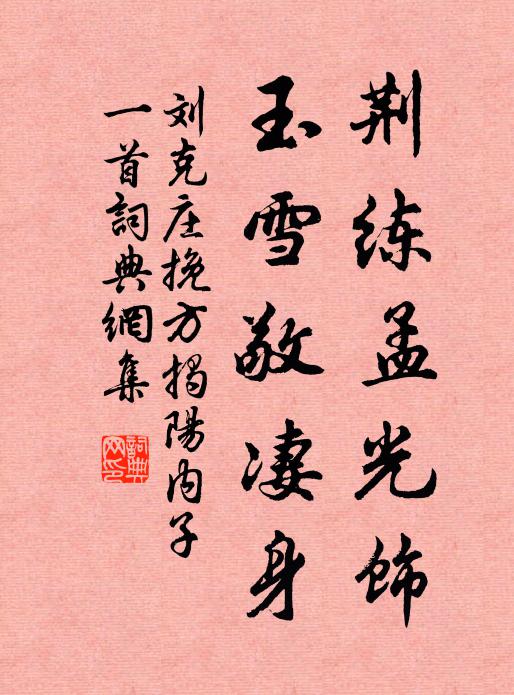 荆练孟光饰
玉雪敬凄身
刘克庄挽方揭陽内子
一首詞典網集
詞典网印